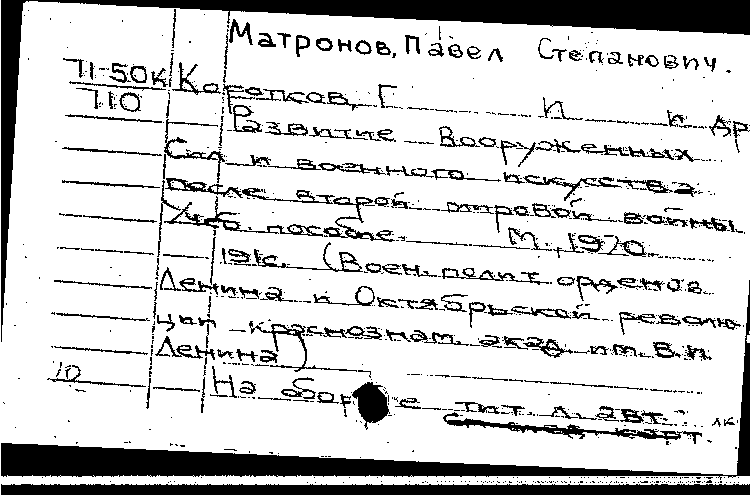 Матронов, Павел Степанович.
71-50к Коротков, Г И и др
710 Развитие Вооруженных
Сил и военного искусства
после второй мировой войны
Учеб. пособие. М., 1970.
191с. (Воен. полит. орденов
Ленина и Октябрьской револю
ции краснознам. акад. им. В.И.
Ленина)
10 На обороте тит. л. авт.: